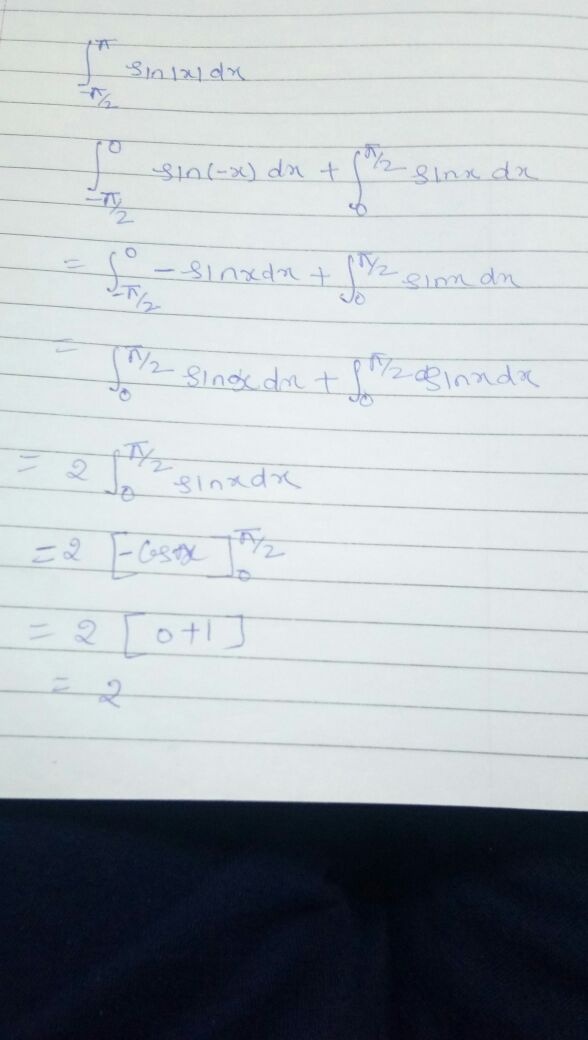 ∫_{-π/2}^{π} sin|x| dx
∫_{-π/2}^{0} sin(-x) dx + ∫_{0}^{π/2} sinx dx
= ∫_{-π/2}^{0} -sinxdx + ∫_{0}^{π/2} sinx dx
= ∫_{0}^{π/2} sinx dx + ∫_{0}^{π/2} sinxdx
= 2 ∫_{0}^{π/2} sinxdx
= 2 [-cosx]_{0}^{π/2}
= 2 [0+1]
= 2